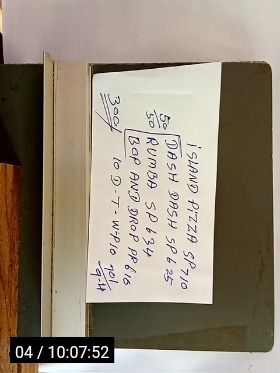 ISLAND PIZZA SP710
DASH DASH SP 625
RUMBA SP 634
BOP AND DROP PP616
10 D-T-W-P10
50/50
300/
04 / 10:07:52